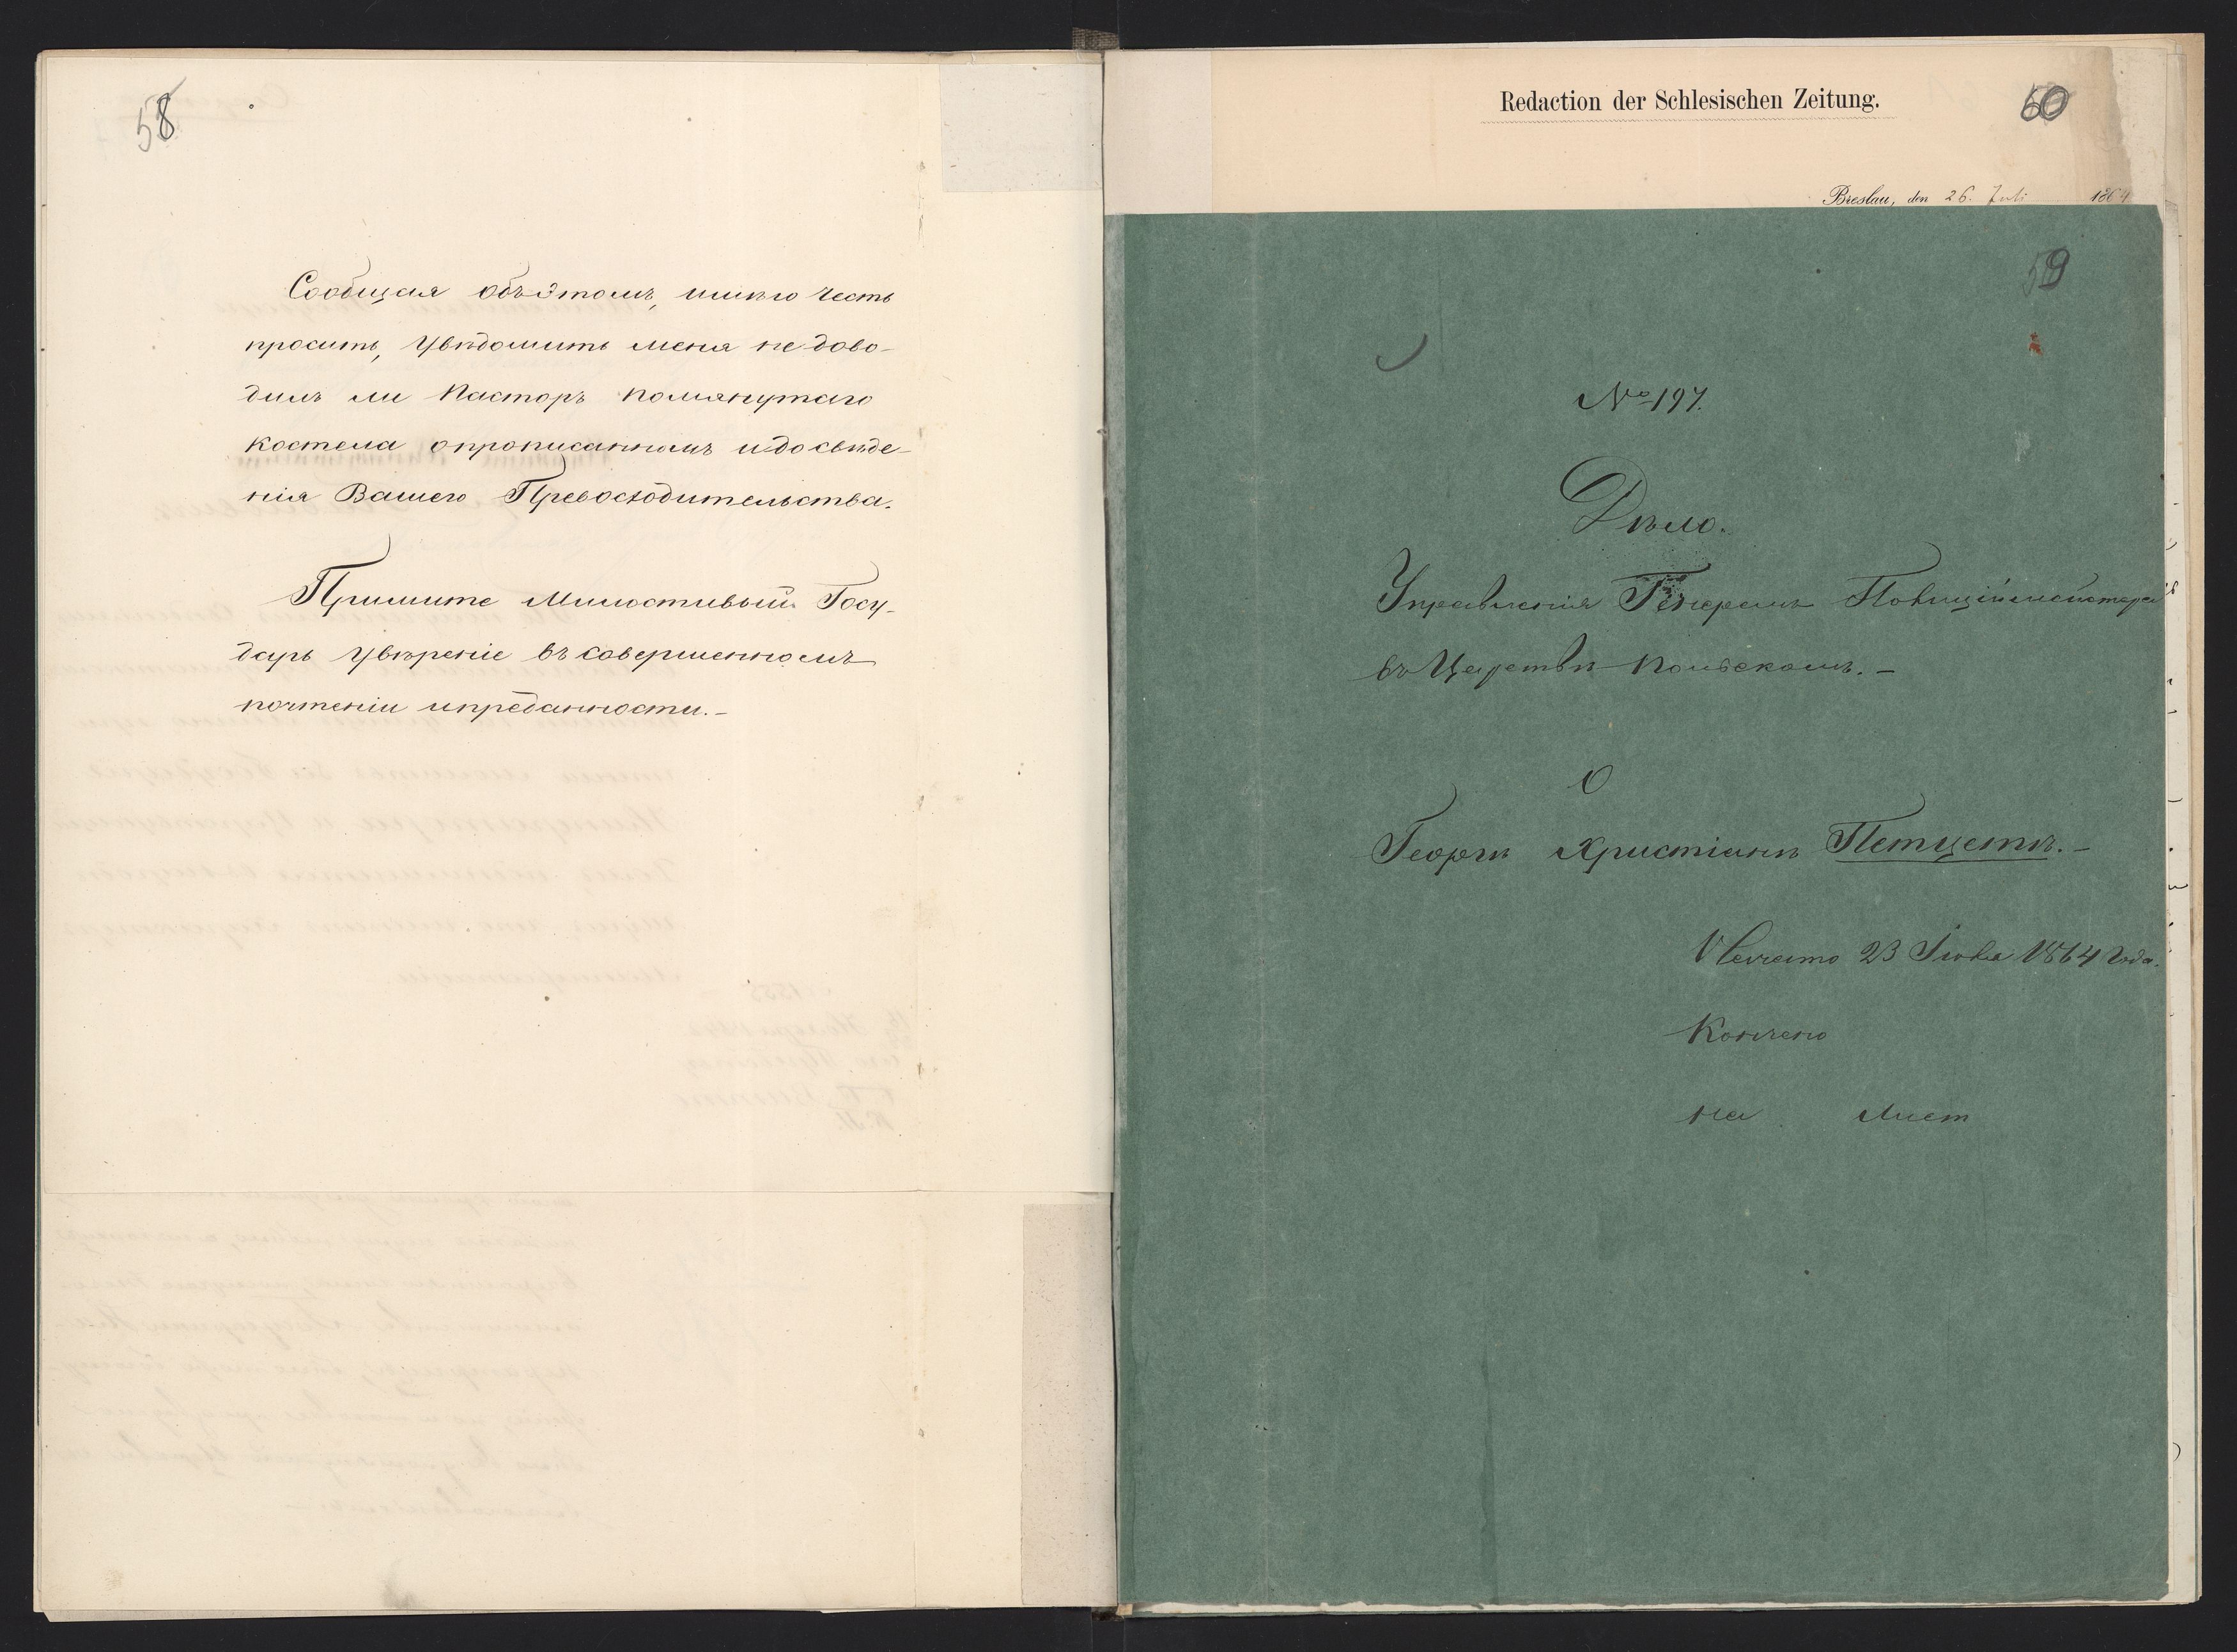 58
Сообщая объ этомъ, имѣю честь
просить, увѣдомить меня не дово-
дилъ ли Пасторъ помянутаго
костела о прописанномъ и до свѣде-
нія Вашего Превосходительства.
Примите Милостивый Госу-
дарь увѣреніе въ совершенномъ
почтеніи и преданности.-
Redaction der Schlesischen Zeitung.
60
Breslau, den 26. Juli 1864
59
№ 197.
Дѣло.
Управленія Генералъ Полицiймейстера
въ Царствѣ Польскомъ.-
О
Георгѣ Христіанѣ Петцетъ.-
Начато 23 Іюля 1864 года.
Кончено
на Лист